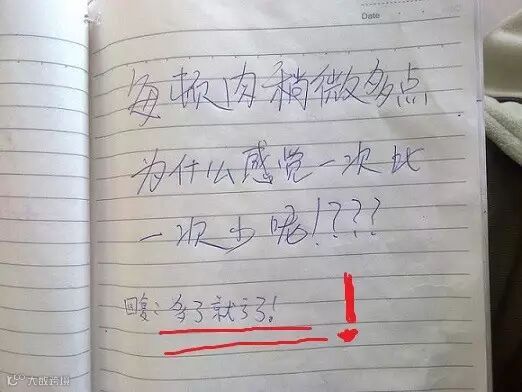 Date
每顿肉稍微多点
为什么感觉一次比
一次少呢!???
回复:多了就亏了!
!
大数跨境